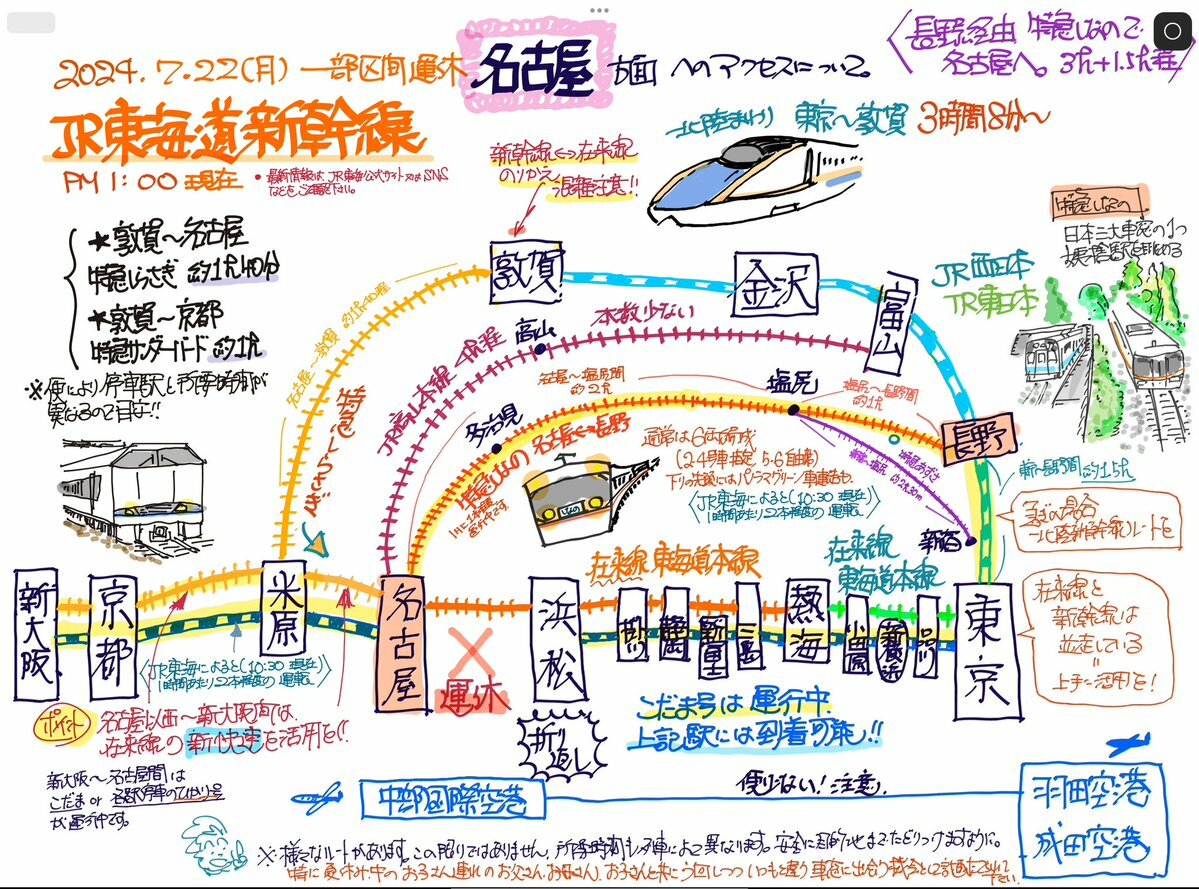 2024.7.22(月) 一部区間運休 名古屋 方面 へのアクセスについて。
〈長野経由 特急しなので
名古屋へ。3h+1.5h程〉
JR東海道新幹線
PM 1:00 現在
・最新情報は JR東海公式サイト又はSNS
などをご確認下さい。
北陸まわり 東京〜敦賀 3時間8分〜
新幹線⇔在来線
のりかえ
混雑注意!!
★敦賀〜名古屋
特急しらさぎ 約1h40分
★敦賀〜京都
特急サンダーバード 約1h
※便により停車駅と所要時間が
異なるので目安!!
特急しなの
日本三大車窓の1つ
姨捨駅を眺める
JR西日本
JR東日本
敦賀
金沢
富山
高山
本数少ない
JR高山本線
名古屋〜敦賀
特急しらさぎ
多治見
名古屋〜塩尻間
約2h
塩尻
塩尻〜長野間
約1h
長野
特急しなの 名古屋⇔長野
通常は6両編成
(2-4号車指定 5-6自由)
〈JR東海によると(10:30 現在)
1時間あたり2本程度の運転〉
しなの
特急あずさ
新宿〜塩尻
約2h30m
新宿
東京〜長野間
約1.5h
急ぎの場合
北陸新幹線ルートを
在来線と
新幹線は
並走している
〃
上手に活用を!
在来線 東海道本線
在来線
東海道本線
新大阪
京都
米原
名古屋
浜松
掛川
静岡
新富士
三島
熱海
小田原
新横浜
品川
東京
運休
折り返し
〈JR東海によると(10:30 現在)
1時間あたり2本程度の運転〉
こだま号は運行中
上記駅には到着可能!!
ポイント
名古屋以西〜新大阪間は、
在来線の新快速を活用を!!
新大阪〜名古屋間は
こだま or 各駅停車のひかり号
が運行中です。
中部国際空港
便少ない!注意.
羽田空港
成田空港
※様々なルートがあります。この限りではありません。所要時間も列車によって異なります。安全に目的地までたどりつけますように。
特に夏休み中のお子さん連れのお父さん、お母さん、お子さんと共に